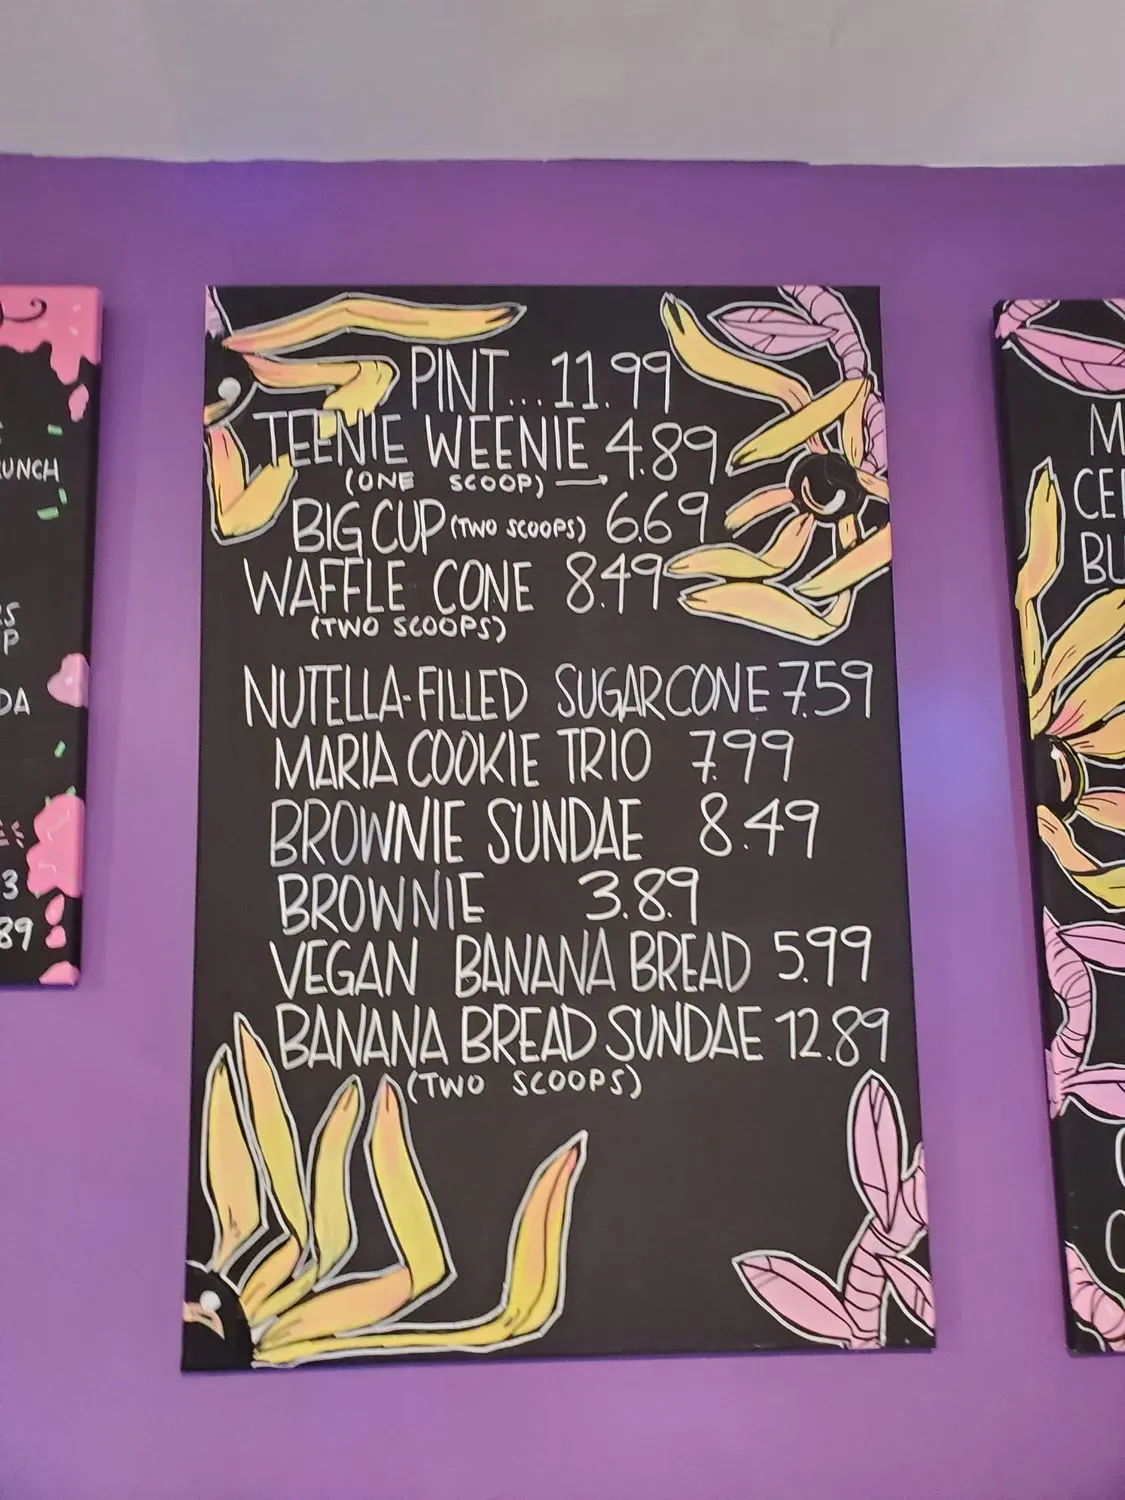 PINT... 11.99
TEENIE WEENIE 4.89
(ONE SCOOP) →
BIG CUP (TWO SCOOPS) 6.69
WAFFLE CONE 8.49
(TWO SCOOPS)
NUTELLA-FILLED SUGAR CONE 7.59
MARIA COOKIE TRIO 7.99
BROWNIE SUNDAE 8.49
BROWNIE 3.89
VEGAN BANANA BREAD 5.99
BANANA BREAD SUNDAE 12.89
(TWO SCOOPS)
UNCH
P
DA
3
89
M
CE
BU